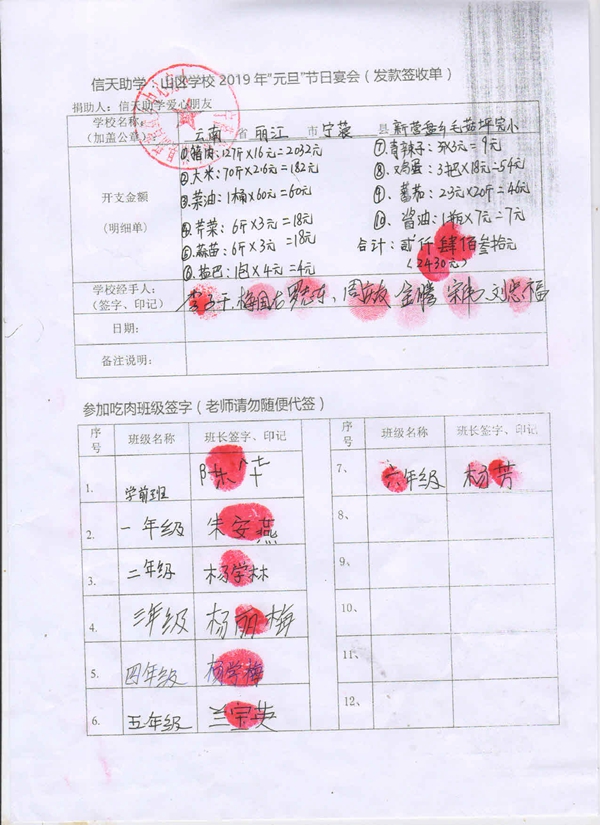 信天助学：山区学校2019年“元旦”节日宴会（发款签收单）
捐助人：信天助学爱心朋友
学校名称：
（加盖公章） 云南 省 丽江 市 宁蒗 县 新营盘乡毛菇坪完小
开支金额
（明细单）
①猪肉：127斤×16元=2032元
②大米：70斤×2.6元=182元
③菜油：1桶×60元=60元
④芹菜：6斤×3元=18元
⑤蒜苗：6斤×3元=18元
⑥盐巴：1包×4元=4元
⑦青辣子：3斤×3元=9元
⑧鸡蛋：3把×18元=54元
⑨蕃茄：2.3元×20斤=46元
⑩酱油：1瓶×7元=7元
合计：贰仟肆佰叁拾元
（2430元）
学校经手人：
（签字、印记） 梅国龙 罗志东、周友 金腾 宋 刘忠福
日期：
备注说明：
参加吃肉班级签字（老师请勿随便代签）
序号 班级名称 班长签字、印记 序号 班级名称 班长签字、印记
1. 学前班 陈华 7、 六年级 杨芳
2. 一年级 朱安燕 8、
3. 二年级 杨学林 9、
4. 三年级 杨丽梅 10、
5. 四年级 杨学梅 11、
6. 五年级 兰宝英 12、